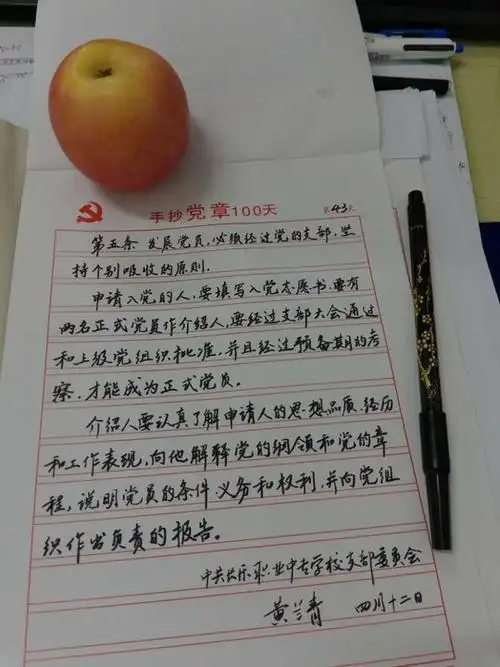 手抄党章100天
第43天
第五条 发展党员,必须经过党的支部,坚
持个别吸收的原则.
申请入党的人,要填写入党志愿书,要有
两名正式党员作介绍人,要经过支部大会通过
和上级党组织批准,并且经过预备期的考
察,才能成为正式党员。
介绍人要认真了解申请人的思想品质、经历
和工作表现,向他解释党的纲领和党的章
程,说明党员的条件、义务和权利,并向党组
织作出负责的报告。
中共长乐职业中专学校支部委员会
黄兰青 四月十二日